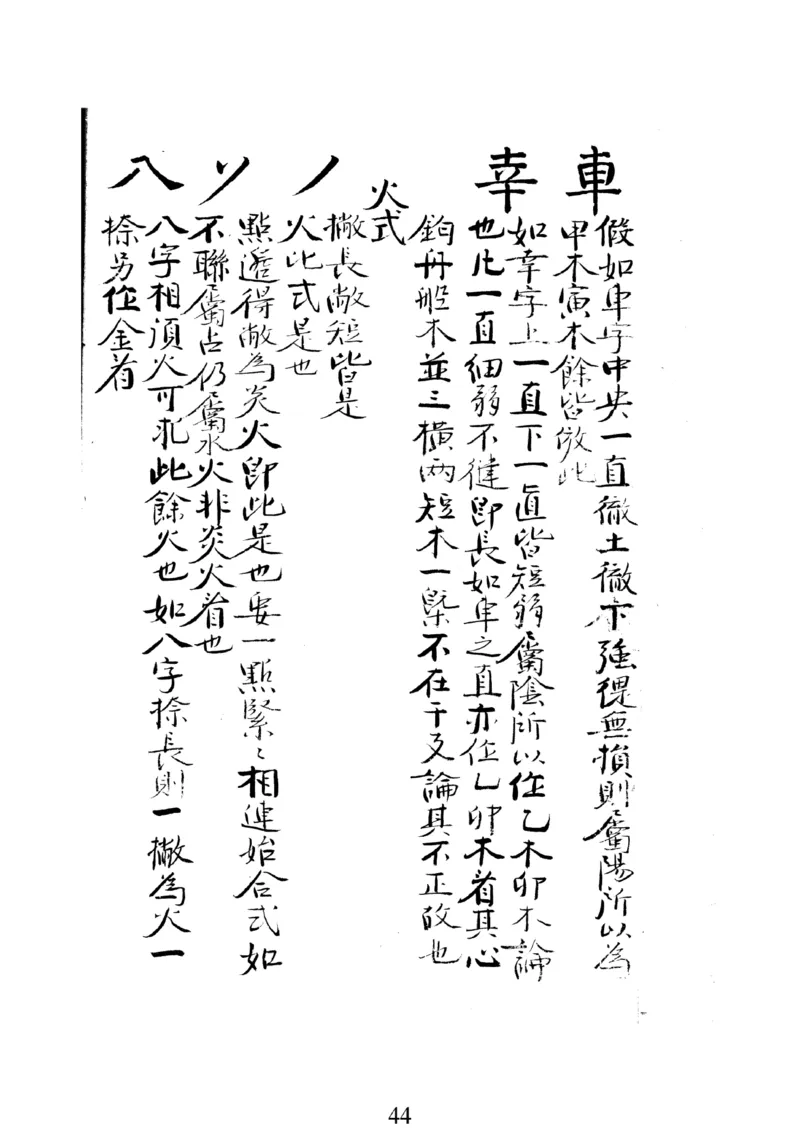 車
假如車字中央一直徹土徹下強硬無損則屬陽所以為
甲木寅木餘皆倣此
幸
如幸字上一直下一直皆短弱屬陰所以作乙木卯木論
也凡一直細弱不健即長如車之直亦作乙卯木看其心
鈎舟船木並三橫兩短木一槩不在干支論其不正故也
火式
丿
撇長撇短皆是
火此式是也
點邊得撇為炎火即此是也要一點緊〻相連始合式如
不聯屬占仍屬水火非炎火看也
八
八字相須火可Index此餘火也如八字捺長則一撇為火一
捺另作金看
44